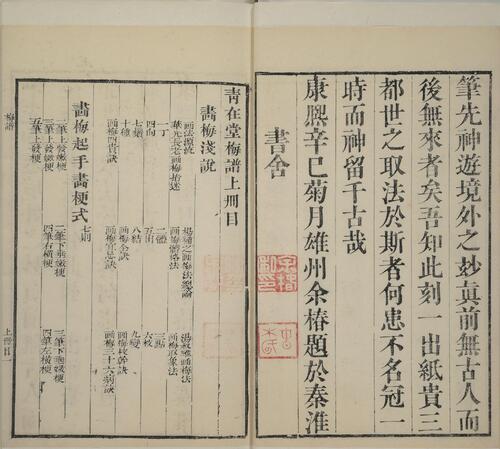 筆先神遊境外之妙真前無古人而
後無來者矣吾知此刻一出紙貴三
都世之取法於斯者何患不名冠一
時而神留千古哉
康熙辛巳菊月雄州余椿題於秦淮
書舍
青在堂梅譜上冊目
畫梅淺說
画法源流
楊補之画梅法總論
湯叔雅画梅法
華光長老画梅指迷
画梅體格法
画梅取象法
一丁
二體
三點
四向
五出
六枝
七鬚
八結
九變
十種
画梅全訣
画梅枝幹訣
画梅四貴訣
画梅宜忌訣
画梅三十六病訣
畫梅起手畫梗式 七則
二筆上發嫩梗
二筆下垂嫩梗
三筆下垂嫩梗
三筆上發嫩梗
四筆右橫梗
四筆左橫梗
五筆上發梗
梅譜
上冊目一